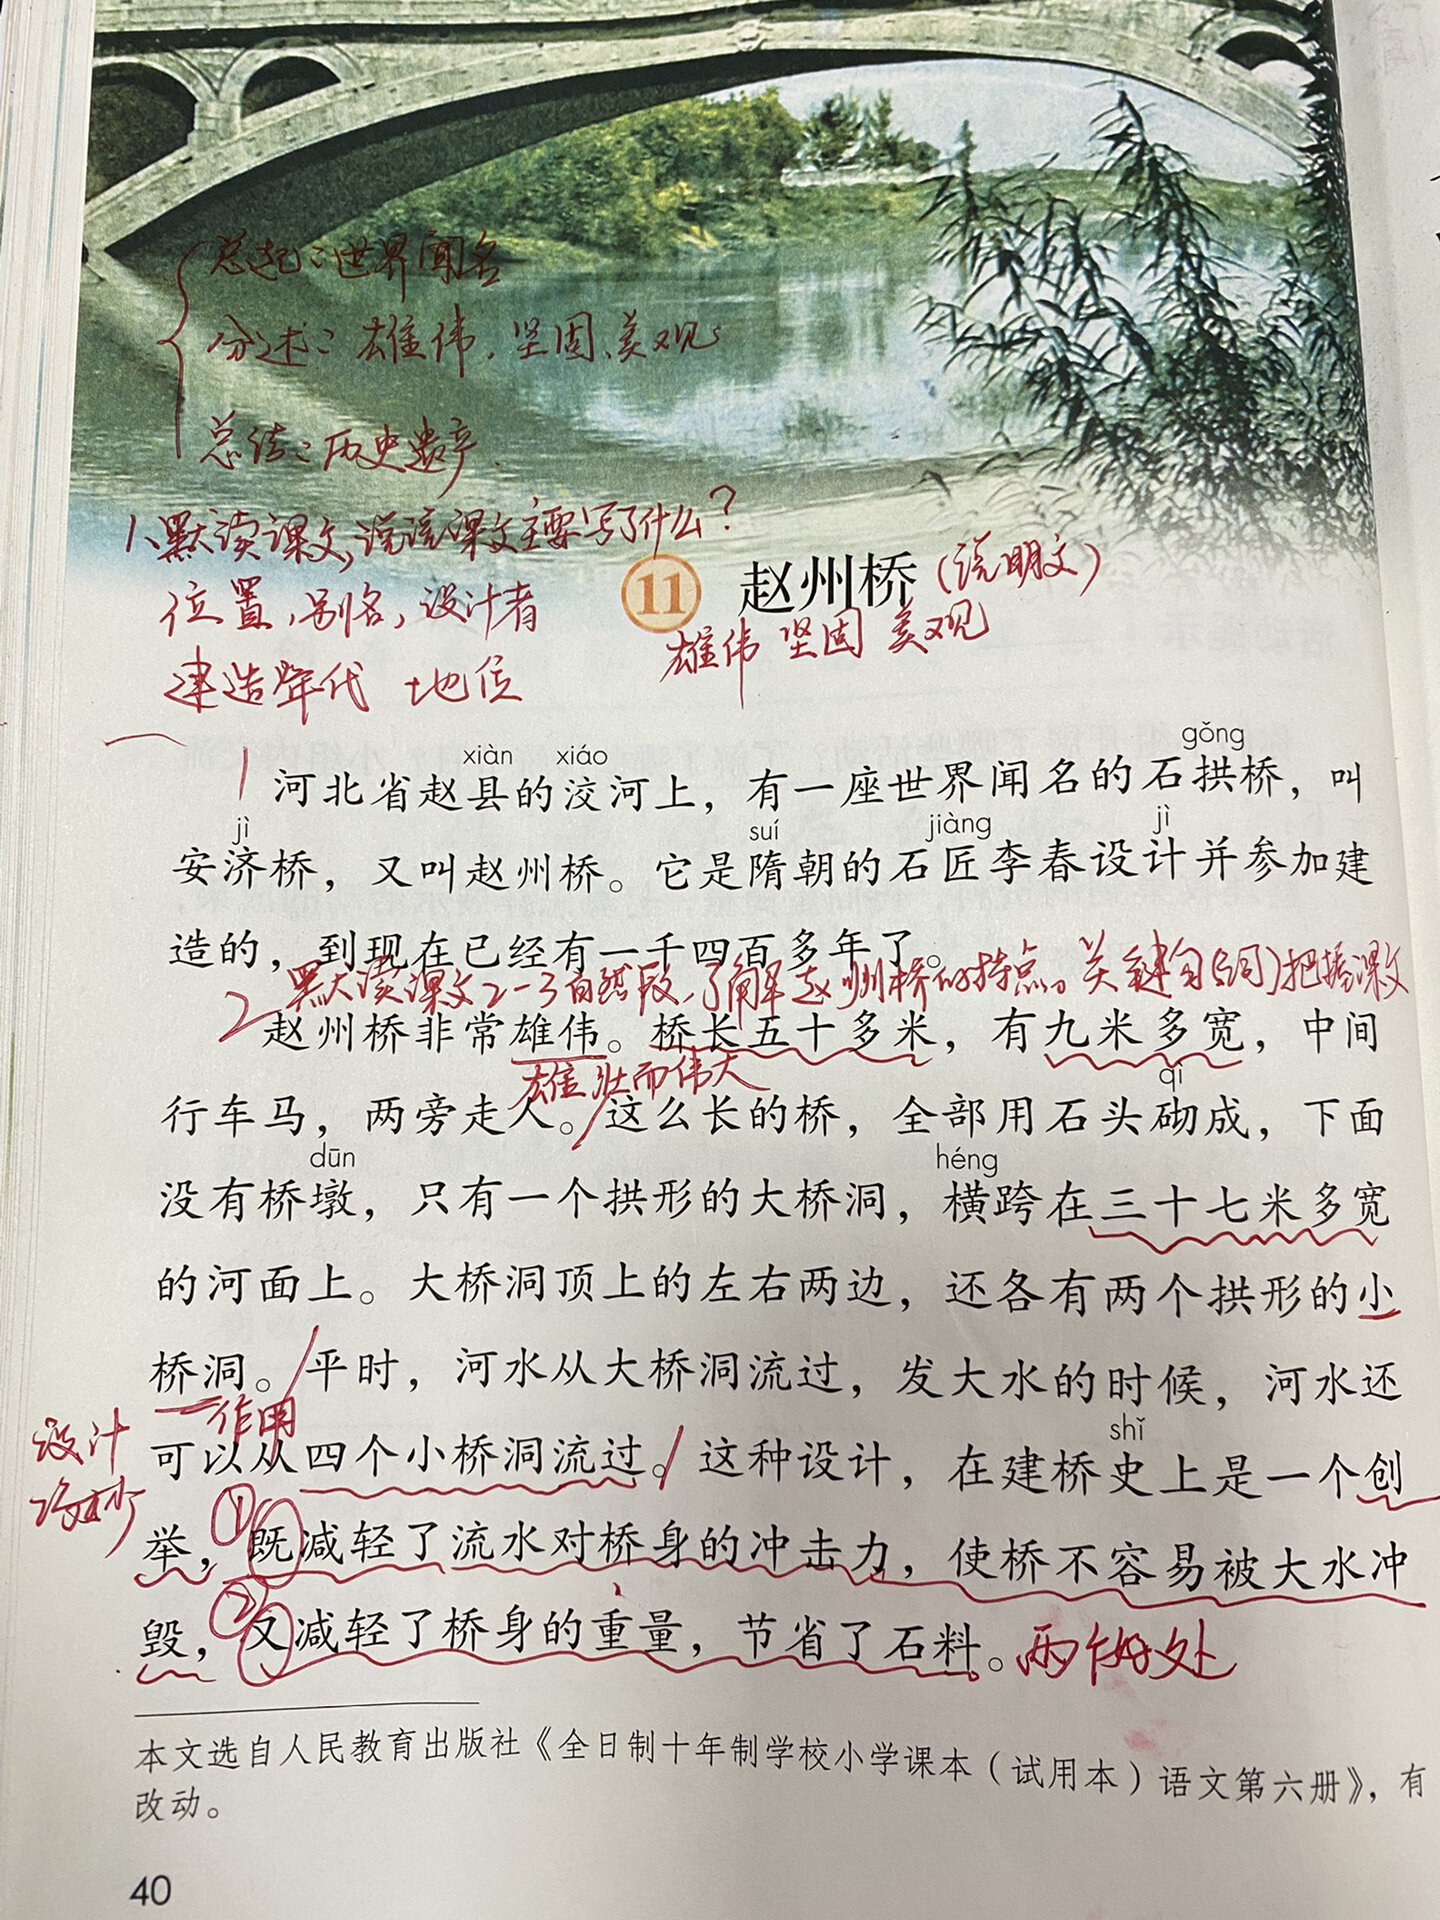 总起：世界闻名
分述：雄伟、坚固、美观
总结：历史遗产
1、默读课文，说说课文主要写了什么？
11 赵州桥（说明文）
位置，别名，设计者
雄伟 坚固 美观
建造年代 地位
xiàn xiáo gǒng
1 河北省赵县的洨河上，有一座世界闻名的石拱桥，叫
jì suí jiàng jì
安济桥，又叫赵州桥。它是隋朝的石匠李春设计并参加建
造的，到现在已经有一千四百多年了。
2 默读课文2-3自然段，了解赵州桥的特点。关键句（词）把握课文
赵州桥非常雄伟。桥长五十多米，有九米多宽，中间
雄壮而伟大
qì
行车马，两旁走人。这么长的桥，全部用石头砌成，下面
dūn héng
没有桥墩，只有一个拱形的大桥洞，横跨在三十七米多宽
的河面上。大桥洞顶上的左右两边，还各有两个拱形的小
桥洞。平时，河水从大桥洞流过，发大水的时候，河水还
作用
设计
巧妙
shǐ
可以从四个小桥洞流过。这种设计，在建桥史上是一个创
举，①既减轻了流水对桥身的冲击力，使桥不容易被大水冲
毁，②又减轻了桥身的重量，节省了石料。两个好处
本文选自人民教育出版社《全日制十年制学校小学课本（试用本）语文第六册》，有
改动。
40